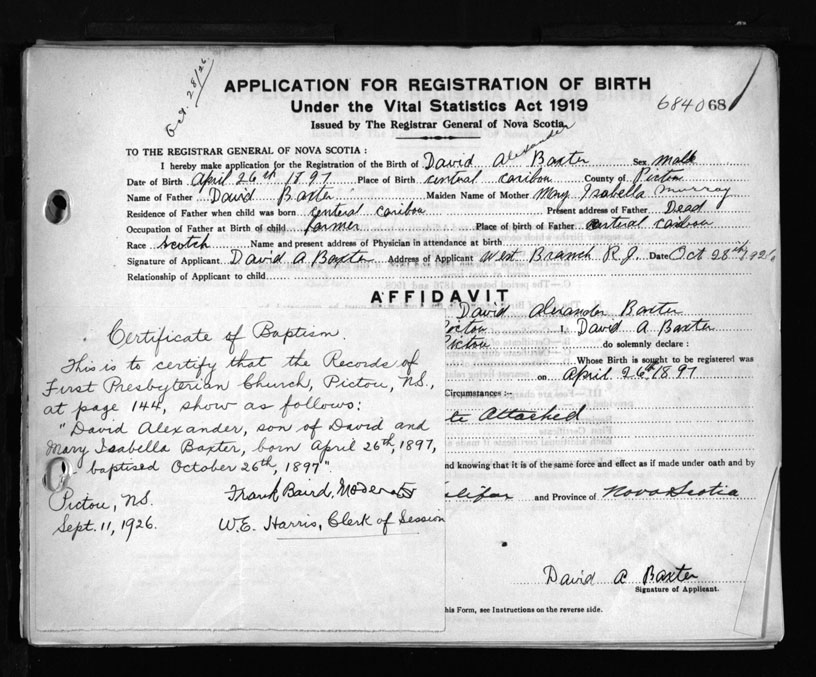 Oct. 28/26
APPLICATION FOR REGISTRATION OF BIRTH
Under the Vital Statistics Act 1919
684068
Issued by The Registrar General of Nova Scotia
TO THE REGISTRAR GENERAL OF NOVA SCOTIA :
I hereby make application for the Registration of the Birth of David Alexander Baxter Sex male
Date of Birth April 26th 1897 Place of Birth central caribou County of Pictou
Name of Father David Baxter Maiden Name of Mother Mary Isabella Murray
Residence of Father when child was born central caribou Present address of Father Dead
Occupation of Father at Birth of child farmer Place of birth of Father central caribou
Race Scotch Name and present address of Physician in attendance at birth
Signature of Applicant David A Baxter Address of Applicant West Branch R.J. Date Oct 28th 1926
Relationship of Applicant to child
AFFIDAVIT
David Alexander Baxter
Pictou I, David A Baxter
Pictou do solemnly declare :
Whose Birth is sought to be registered was
on April 26th 1897
Circumstances :-
Attached
and knowing that it is of the same force and effect as if made under oath and by
Halifax and Province of Nova Scotia
David A Baxter
Signature of Applicant.
his Form, see Instructions on the reverse side.
Certificate of Baptism.
This is to certify that the Records of
First Presbyterian Church, Pictou, N.S.,
at page 144, show as follows:
"David Alexander, son of David and
Mary Isabella Baxter, born April 26th, 1897,
baptised October 26th, 1897".
Pictou, N.S. Frank Baird, Moderator
Sept. 11, 1926. W.E. Harris, Clerk of Session